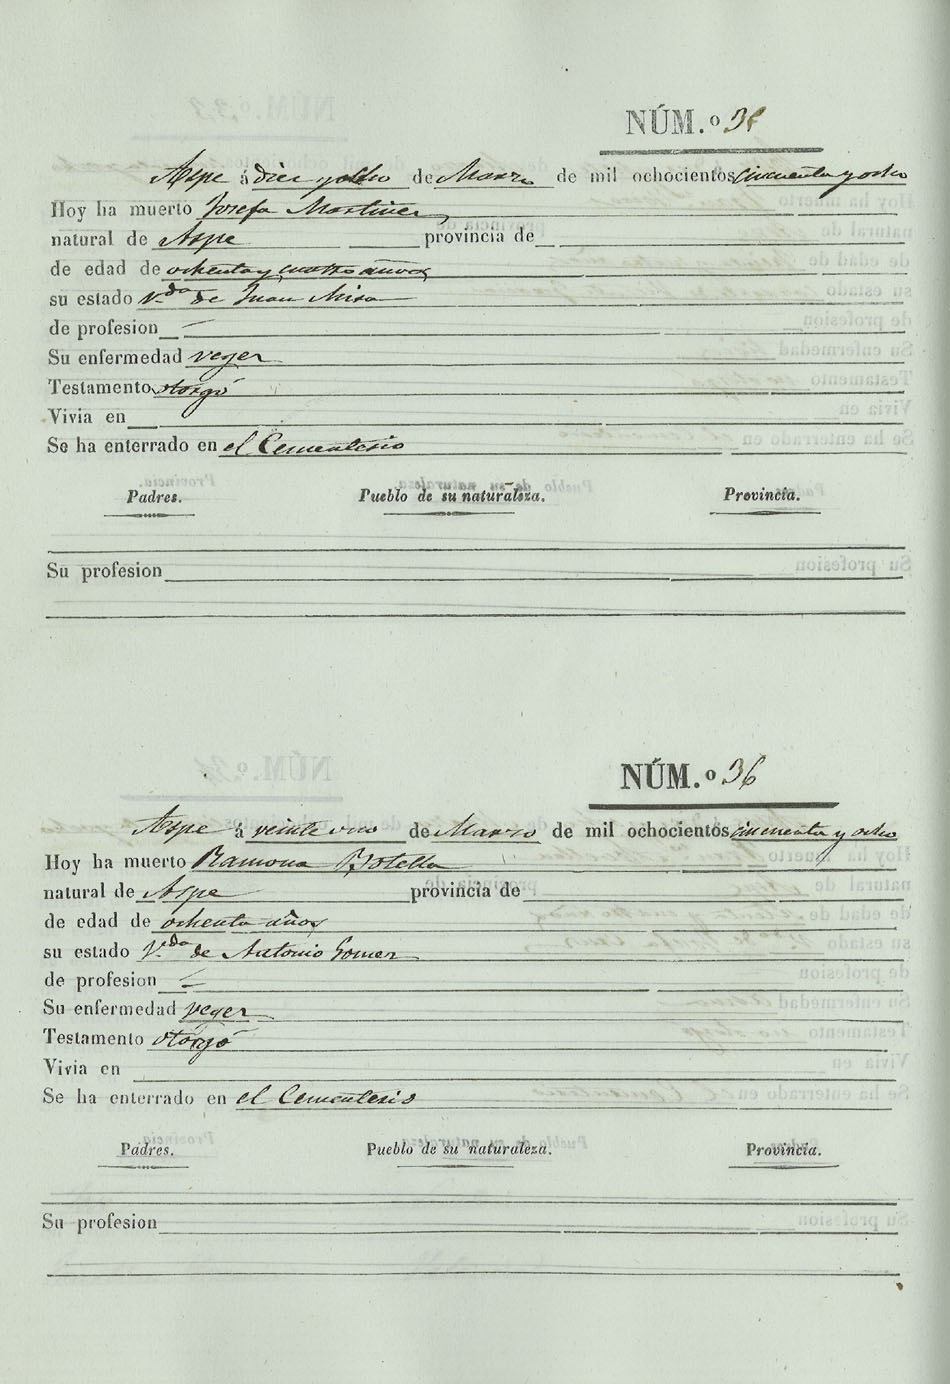 NÚM.º 35
Aspe á diez y ocho de Marzo de mil ochocientos cincuenta y ocho
Hoy ha muerto Josefa Martinez
natural de Aspe provincia de
de edad de ochenta y cuatro años
su estado V.da de Juan Mira
de profesion
Su enfermedad vegez
Testamento otorgó
Vivia en
Se ha enterrado en el Cementerio
Padres. Pueblo de su naturaleza. Provincia.
Su profesion
NÚM.º 36
Aspe á veinte uno de Marzo de mil ochocientos cincuenta y ocho
Hoy ha muerto Ramona Botella
natural de Aspe provincia de
de edad de ochenta años
su estado V.da de Antonio Gomez
de profesion
Su enfermedad vegez
Testamento otórgó
Vivia en
Se ha enterrado en el Cementerio
Padres. Pueblo de su naturaleza. Provincia.
Su profesion